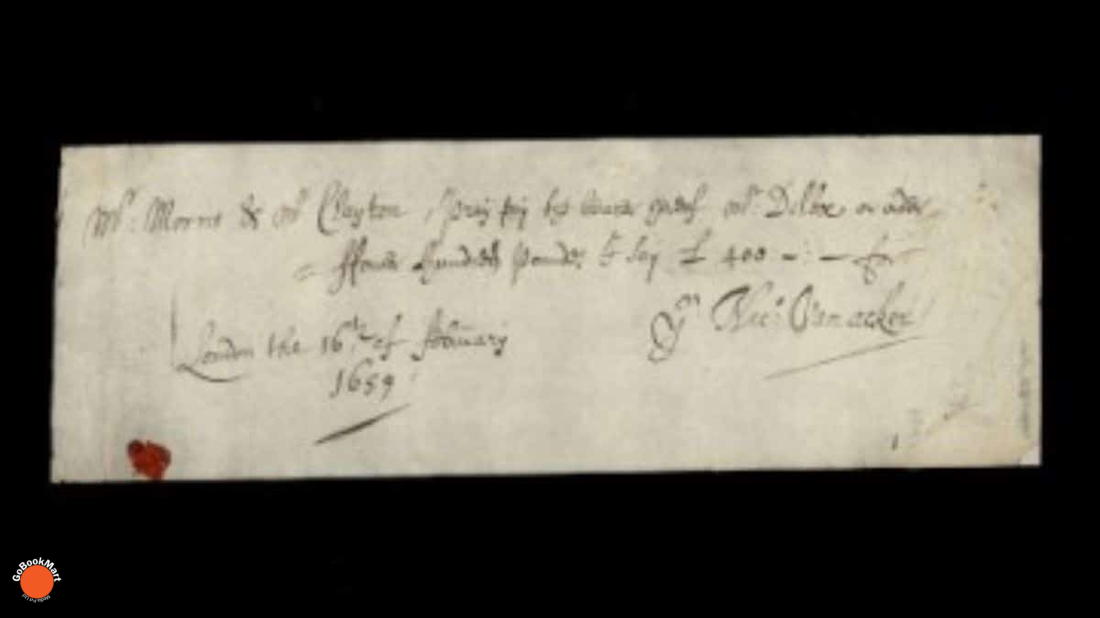 Mr: Morris & Mr Clayton, pray pay the bearer hereof Mr Delboe or order
ffoure hundreth pounds; I say £ 400 -:- for
Yr Nic: Vanacker
London the 16th of february
1659
GoBookMart